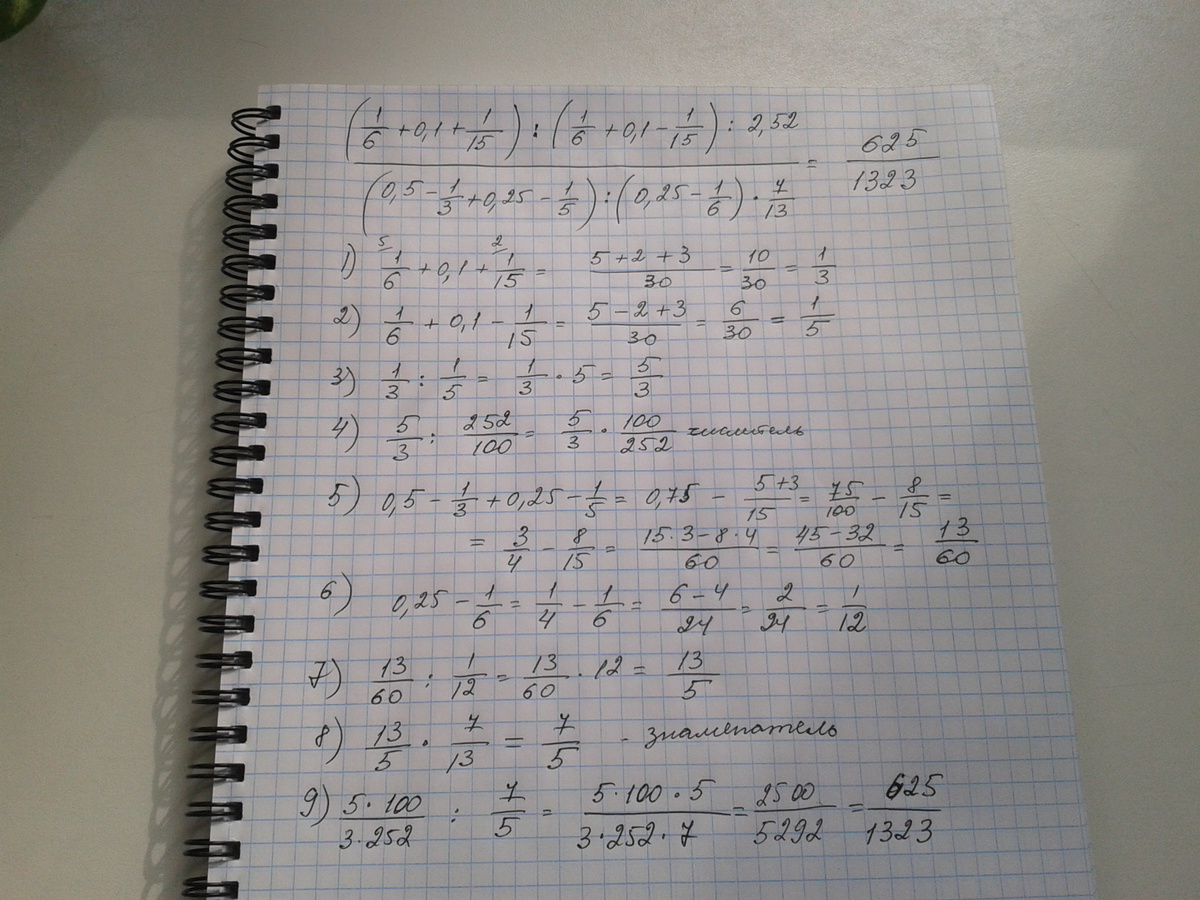 (1/6 + 0,1 + 1/15) : (1/6 + 0,1 - 1/15) : 2,52 / (0,5 - 1/3 + 0,25 - 1/5) : (0,25 - 1/6) · 7/13 = 625/1323
1) 5 1/6 + 0,1 + 2 1/15 = 5 + 2 + 3/30 = 10/30 = 1/3
2) 1/6 + 0,1 - 1/15 = 5 - 2 + 3/30 = 6/30 = 1/5
3) 1/3 : 1/5 = 1/3 · 5 = 5/3
4) 5/3 : 252/100 = 5/3 · 100/252 числитель
5) 0,5 - 1/3 + 0,25 - 1/5 = 0,75 - 5+3/15 = 75/100 - 8/15 =
= 3/4 - 8/15 = 15·3-8·4/60 = 45-32/60 = 13/60
6) 0,25 - 1/6 = 1/4 - 1/6 = 6-4/24 = 2/24 = 1/12
7) 13/60 : 1/12 = 13/60 · 12 = 13/5
8) 13/5 · 7/13 = 7/5 - знаменатель
9) 5·100/3·252 : 7/5 = 5·100·5/3·252·7 = 2500/5292 = 625/1323